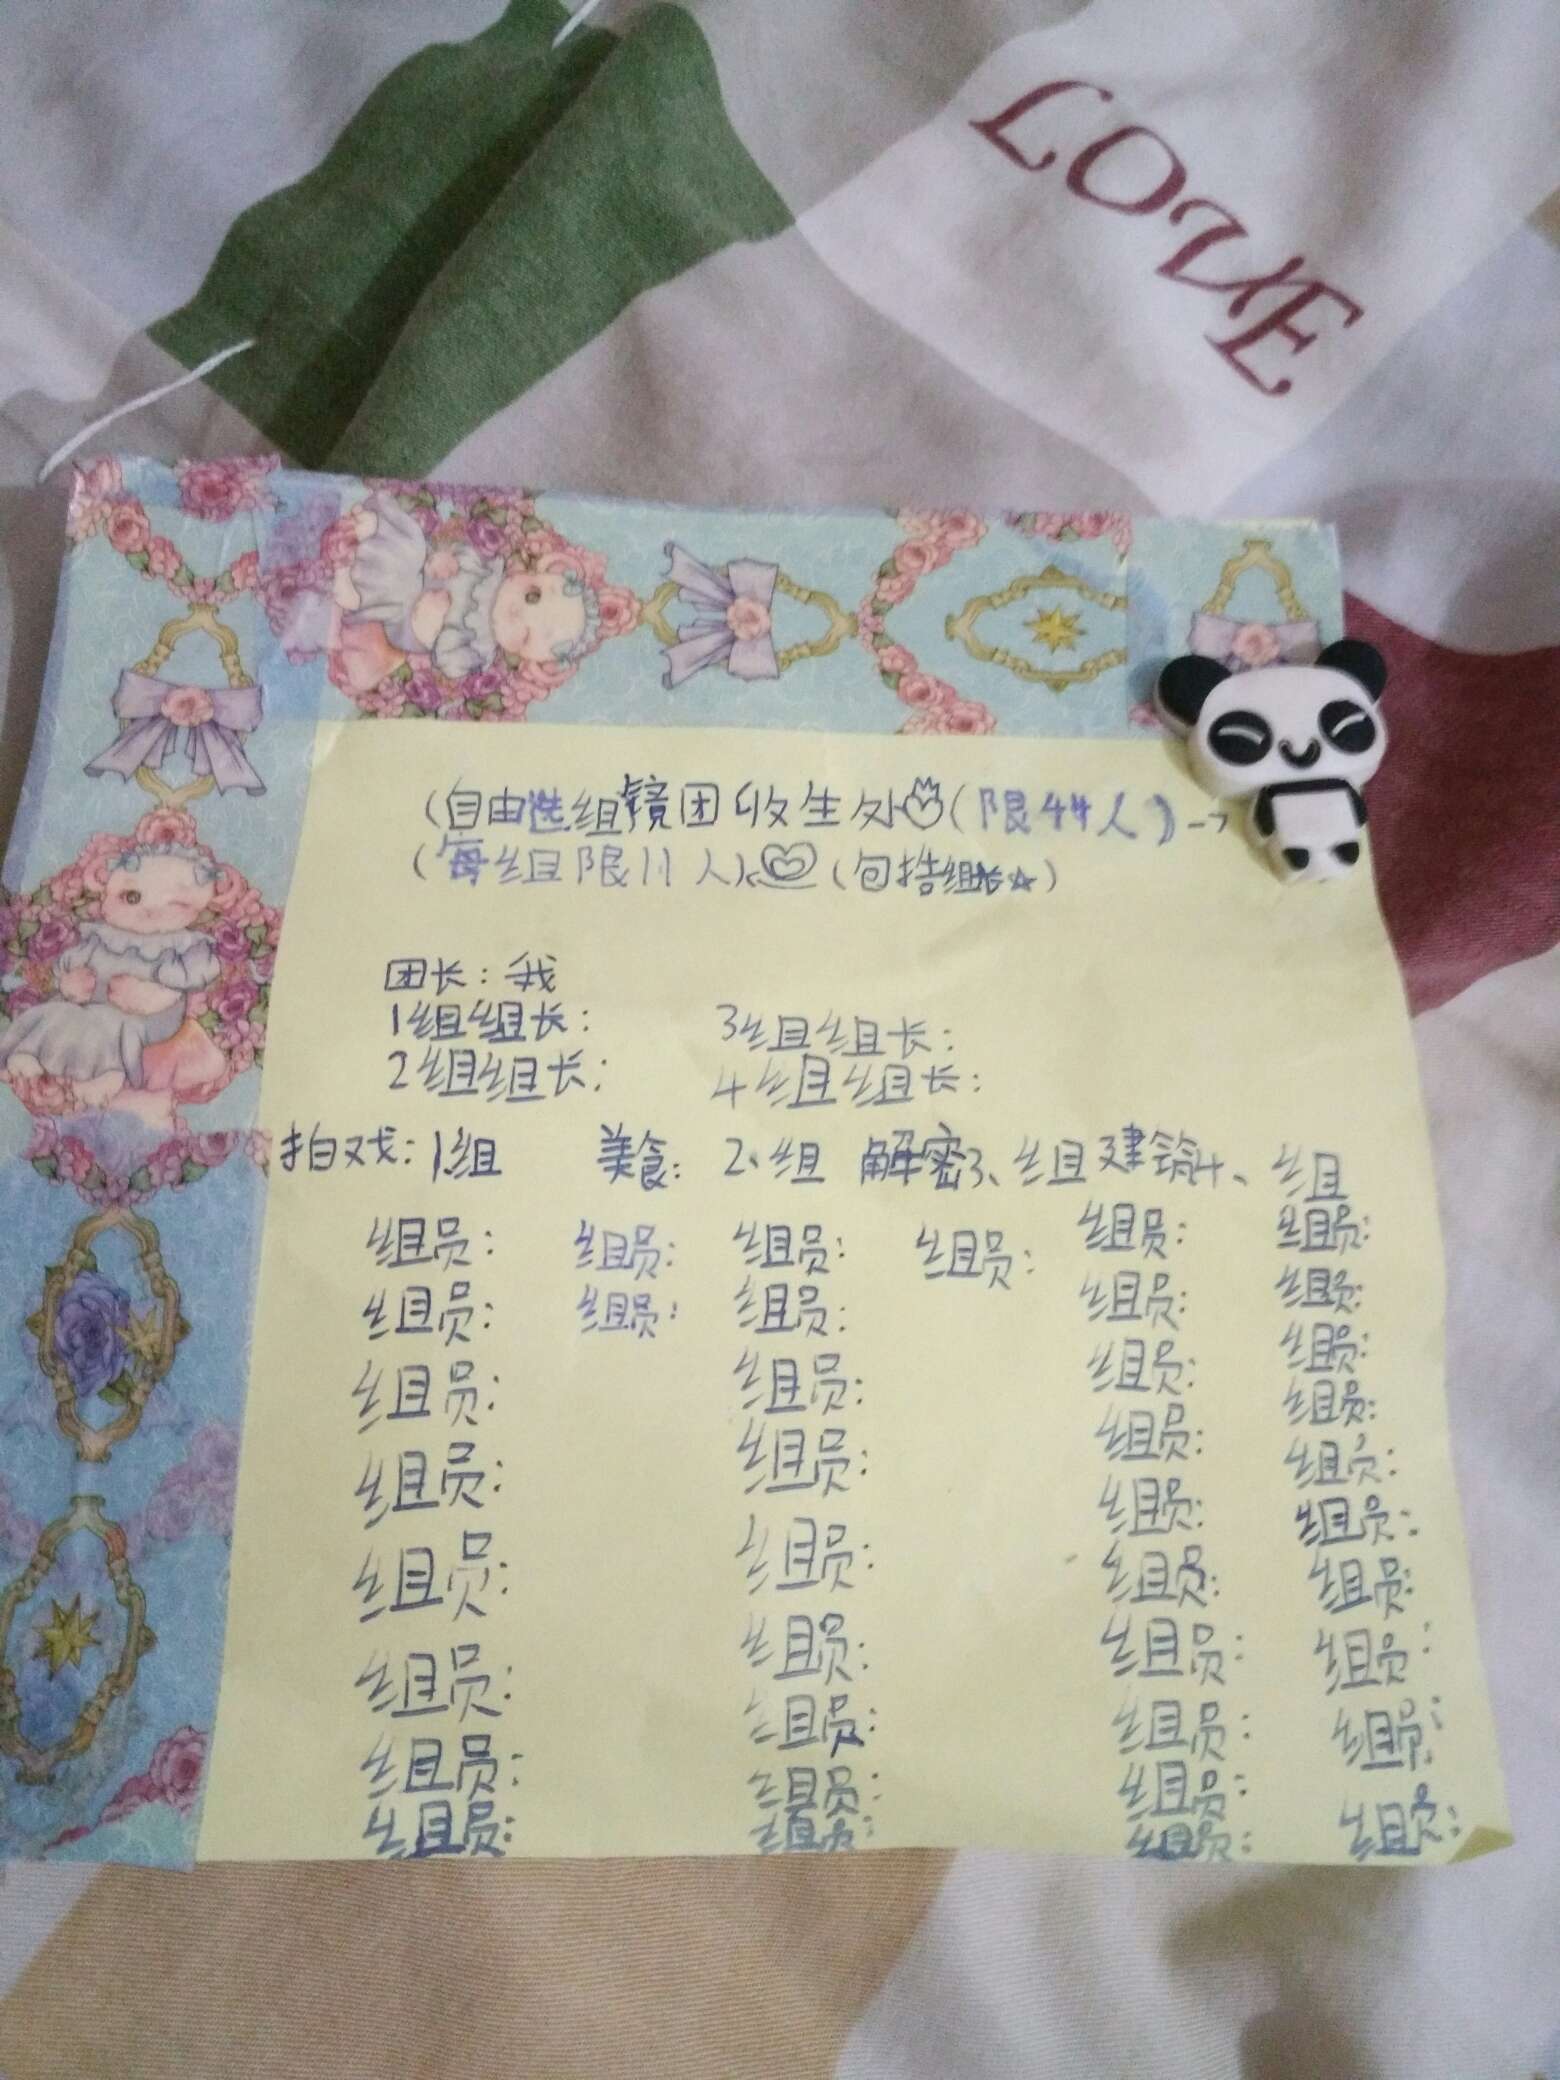 LOVE
(自由选组镜团收生处(限44人)→
(每组限11人)(包括组长☆)
团长:我
1组组长: 3组组长:
2组组长: 4组组长:
拍戏:1.组 美食:2、组 解密3、组 建筑4、组
组员: 组员: 组员: 组员: 组员: 组员:
组员: 组员: 组员: 组员: 组员:
组员: 组员: 组员: 组员:
组员: 组员: 组员: 组员:
组员: 组员: 组员: 组员:
组员: 组员: 组员: 组员:
组员: 组员: 组员: 组员:
组员: 组员: 组员: 组员:
组员: 组员: 组员:
组员: 组员: